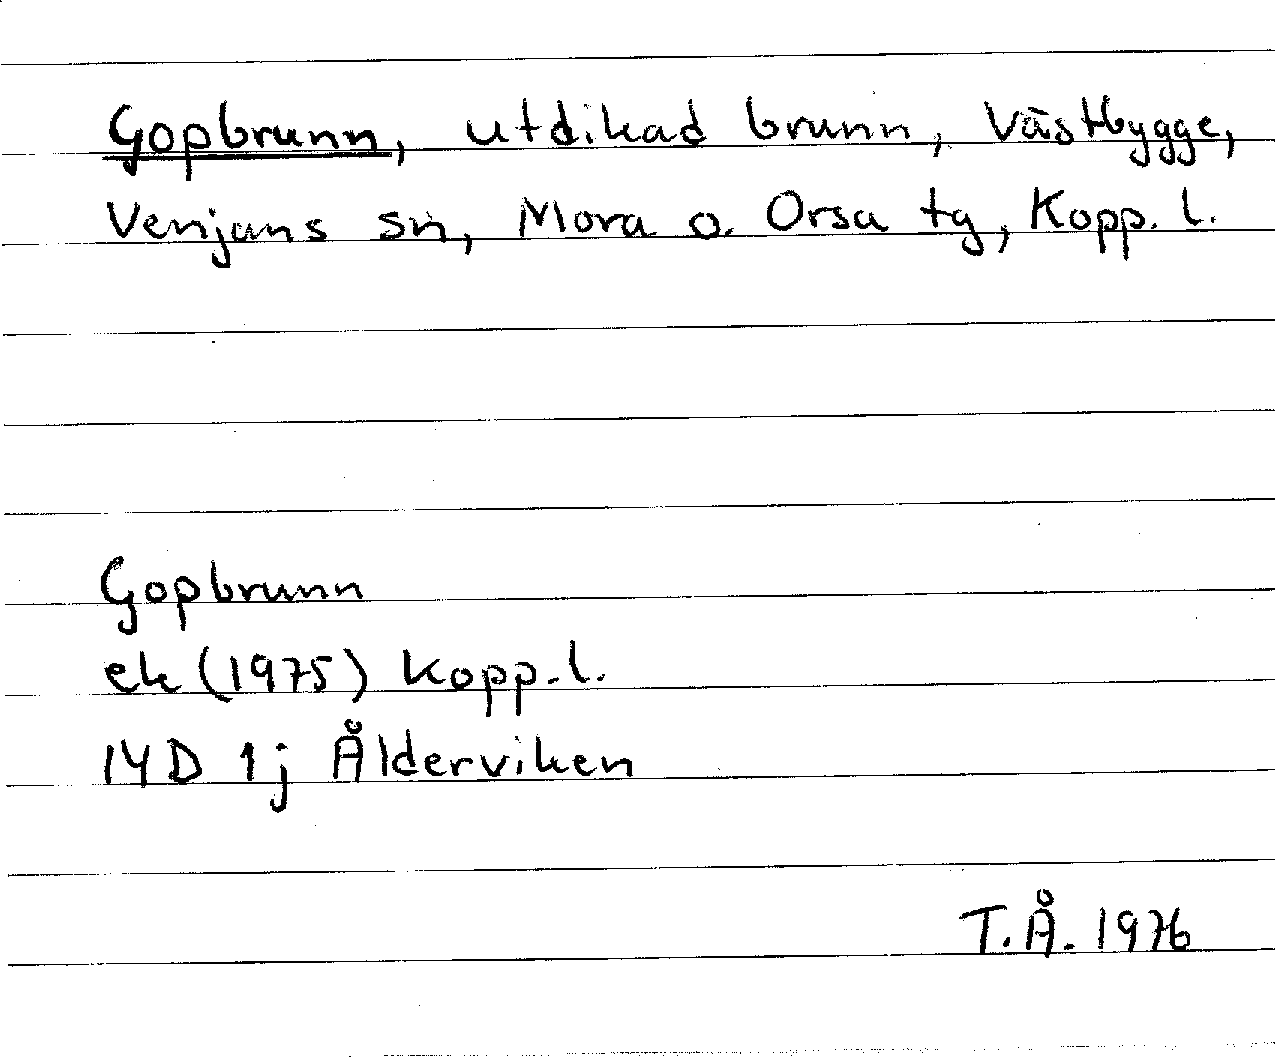 Gopbrunn, utdikad brunn, Västbygge,
Venjans sn, Mora o. Orsa tg, Kopp. l.
Gopbrunn
ek (1975) Kopp. l.
14D 1j Ålderviken
T.Å. 1976